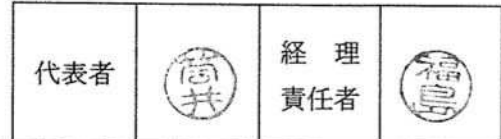 代表者
筒井
経理
責任者
福島